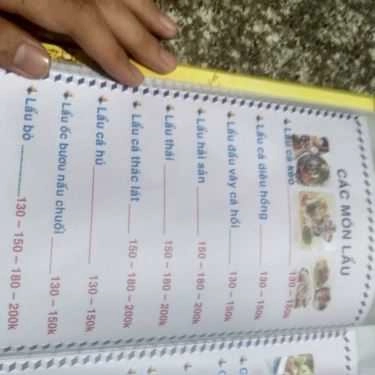 CÁC MÓN LẨU
Lẩu cá kèo 130 – 150k
Lẩu cá diêu hồng 130 – 150k
Lẩu đầu vây cá hồi 130 – 150k
Lẩu hải sản 150 – 180 – 200k
Lẩu thái 150 – 180 – 200k
Lẩu cá thác lát 150 – 180 – 200k
Lẩu cá hú 130 – 150k
Lẩu ốc bươu nấu chuối 130 – 150k
Lẩu bò 130 – 150 – 180 – 200k